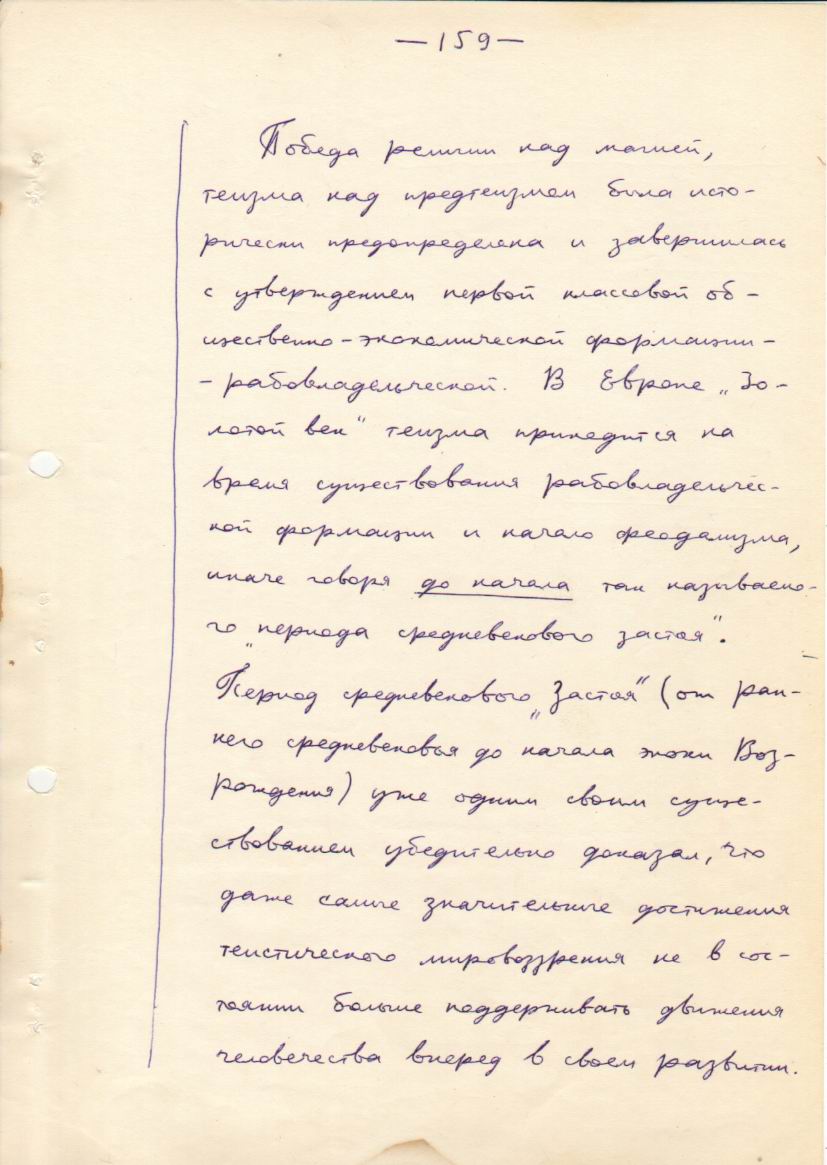 —159—
Победа религии над магией,
теизма над предтеизмом была исто-
рически предопределена и завершилась
с утверждением первой классовой об-
щественно-экономической формации-
-рабовладельческой. В Европе „Зо-
лотой век“ теизма приходится на
время существования рабовладельчес-
кой формации и начало феодализма,
иначе говоря до начала так называемо-
го „периода средневекового застоя“.
Период средневекового „Застоя“ (от ран-
него средневековья до начала эпохи Воз-
рождения) уже одним своим суще-
ствованием убедительно доказал, что
даже самые значительные достижения
теистического мировоззрения не в сос-
тоянии больше поддерживать движения
человечества вперед в своем развитии.